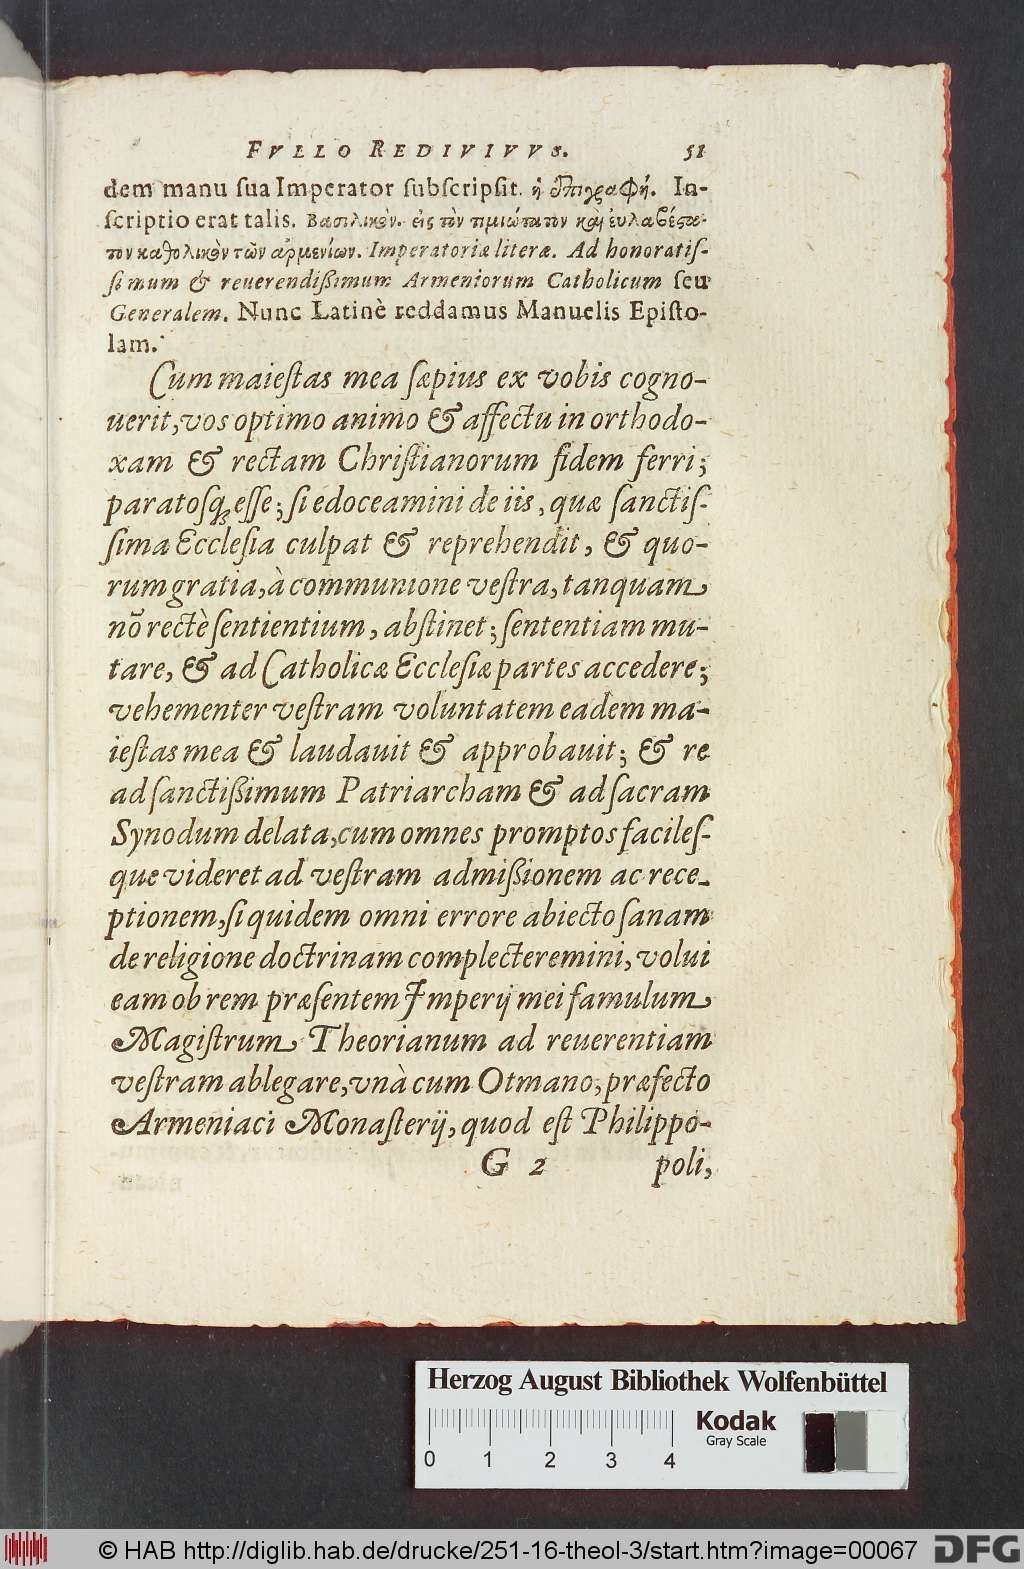 FVLLO REDIVIVVS. 51
dem manu sua Imperator subscripsit. ἡ ἐπιγραφή. In-
scriptio erat talis. Βασιλικὸν. εἰς τὸν τιμιώτατον καὶ ἐυλαβέστα-
τον καθολικὸν τῶν αρμενίων. Imperatoriæ literæ. Ad honoratiſ-
ſimum & reuerendißimum Armeniorum Catholicum ſeu
Generalem. Nunc Latinè reddamus Manuelis Epiſto-
lam.
Cum maieſtas mea ſæpius ex vobis cogno-
uerit, vos optimo animo & affectu in orthodo-
xam & rectam Chriſtianorum fidem ferri;
paratosq; eſſe; ſi edoceamini de iis, quæ ſanctiſ-
ſima Eccleſia culpat & reprehendit, & quo-
rum gratia, à communione veſtra, tanquam
nō rectè ſentientium, abſtinet; ſententiam mu-
tare, & ad Catholicæ Eccleſiæ partes accedere;
vehementer veſtram voluntatem eadem ma-
ieſtas mea & laudauit & approbauit; & re
ad ſanctißimum Patriarcham & ad ſacram
Synodum delata, cum omnes promptos facileſ-
que videret ad veſtram admißionem ac rece-
ptionem, ſiquidem omni errore abiecto ſanam
de religione doctrinam complecteremini, volui
eam ob rem præſentem Imperij mei famulum
Magiſtrum Theorianum ad reuerentiam
veſtram ablegare, vnà cum Otmano, præfecto
Armeniaci Monaſterij, quod eſt Philippo-
G 2 poli,
Herzog August Bibliothek Wolfenbüttel
Kodak
Gray Scale
0 1 2 3 4
© HAB http://diglib.hab.de/drucke/251-16-theol-3/start.htm?image=00067 DFG